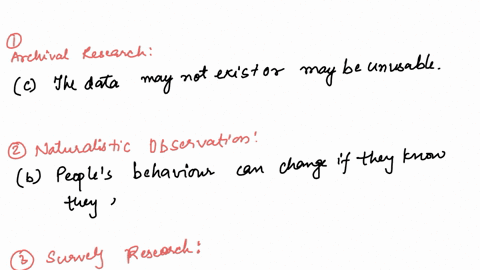 ①
Archival Research:
(c) The data may not exist or may be unusable.
② Naturalistic Observation:
(b) People's behaviour can change if they know
they ,
③ Survey Research: